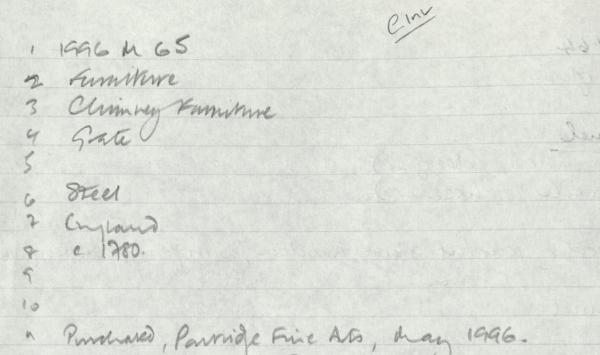 EINV
1 1996 M 65
2 Furniture
3 Chimney Furniture
4 Grate
5
6 Steel
7 England
8 c 1780.
9
10
11 Purchased, Partridge Fine Arts, May 1996.